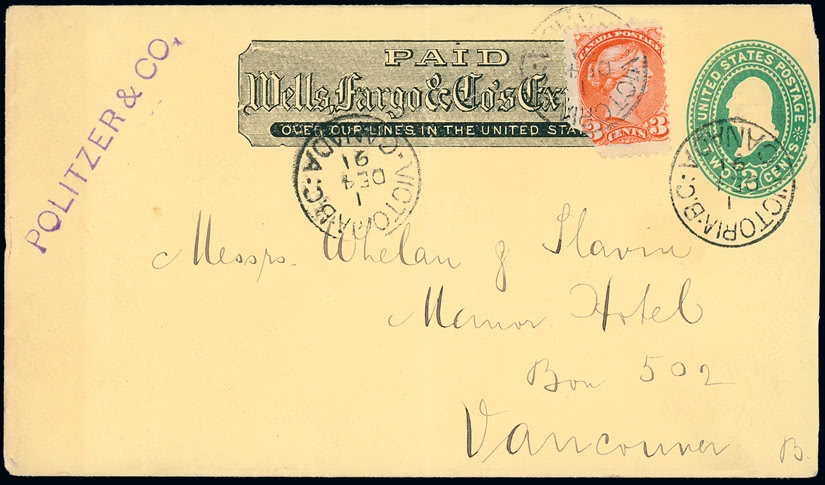 POLITZER & CO.
PAID
Wells, Fargo & Co's Ex
OVER OUR LINES IN THE UNITED STA
CANADA POSTAGE
3 CENTS 3
VICTORIA
UNITED STATES POSTAGE
TWO 2 CENTS
VICTORIA·B.C·CANADA
1
DE 4
91
VICTORIA·B.C·CANA
1
DE 4
91
Messrs. Whelan & Slavin
Manor Hotel
Box 502
Vancouver
B.